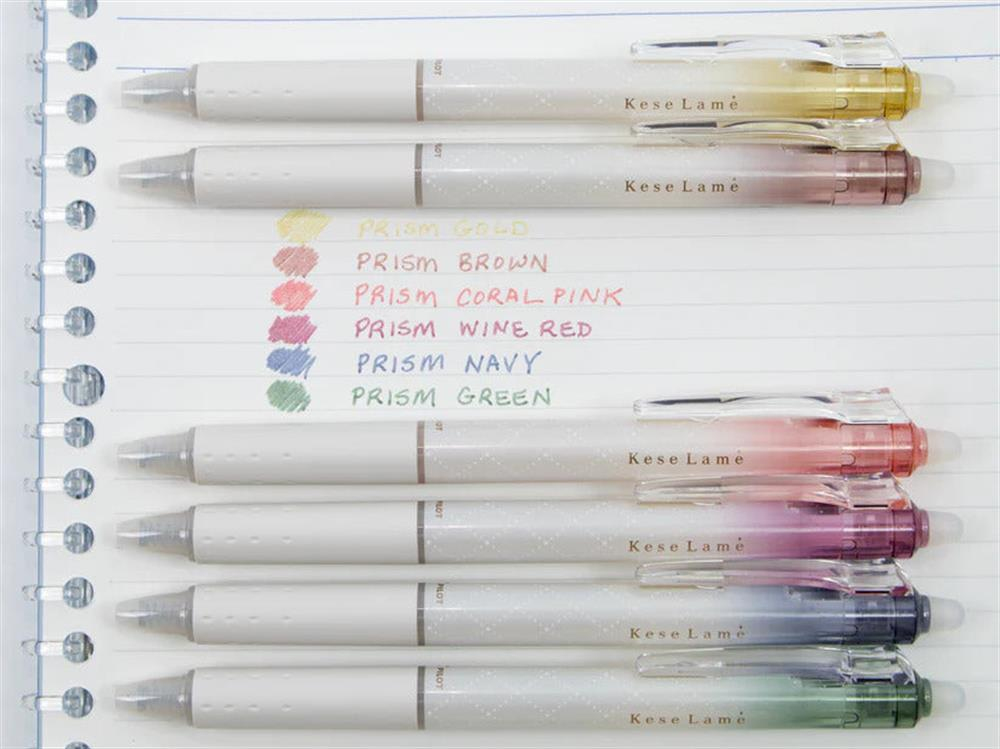 PILOT
Kese Lamé
PILOT
Kese Lamé
PRISM GOLD
PRISM BROWN
PRISM CORAL PINK
PRISM WINE RED
PRISM NAVY
PRISM GREEN
Kese Lamé
PILOT
Kese Lamé
PILOT
Kese Lamé
PILOT
Kese Lamé